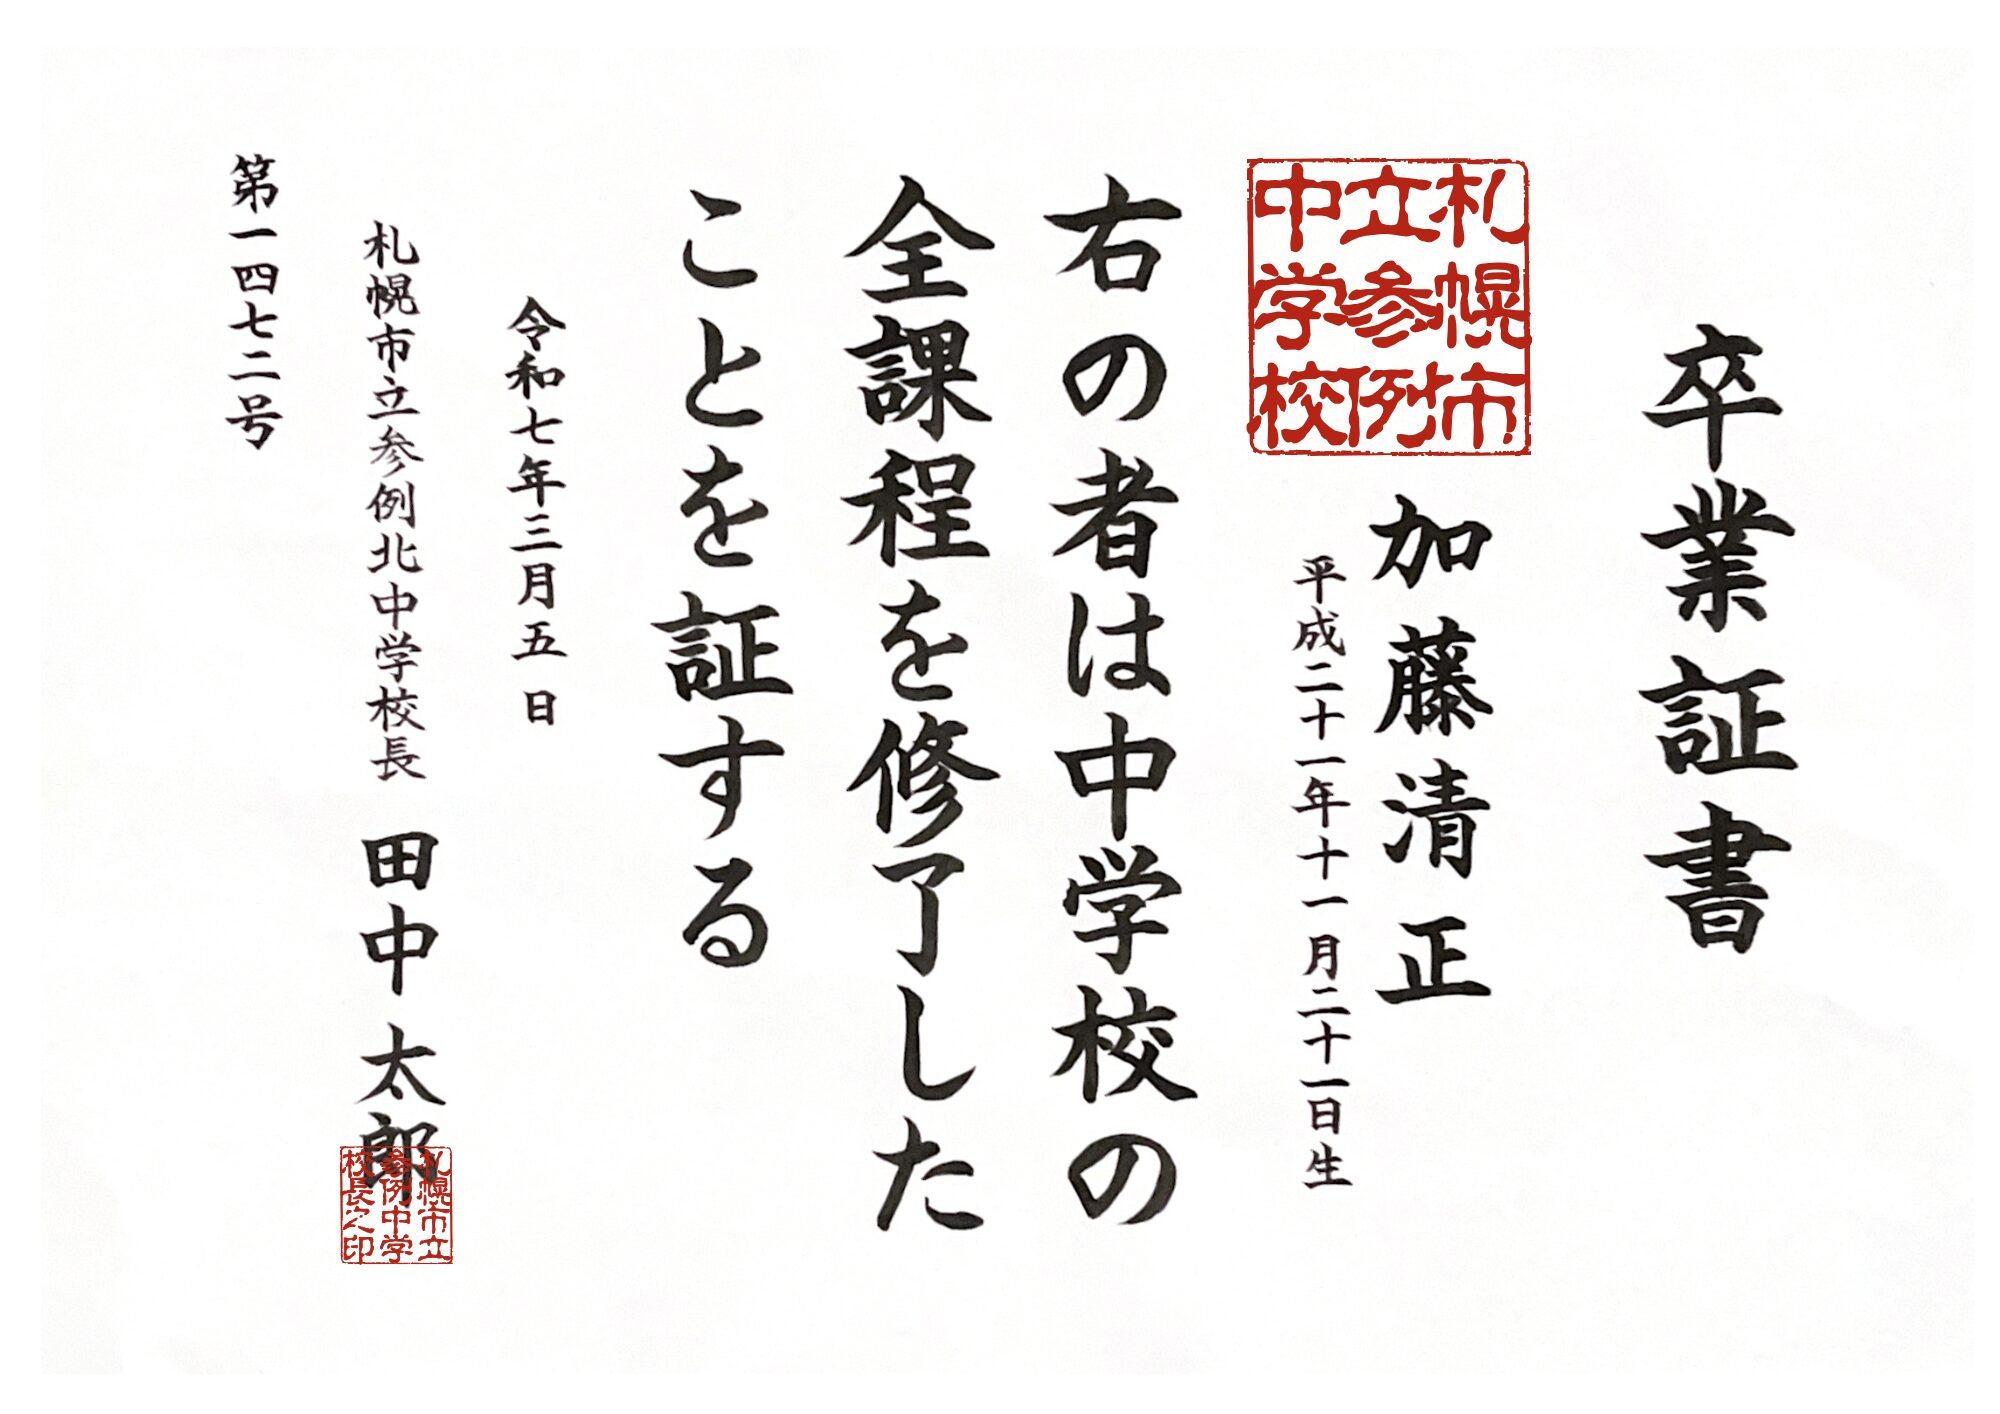 卒業証書
札幌市
立参例
中学校
加藤清正
平成二十一年十一月二十一日生
右の者は中学校の
全課程を修了した
ことを証する
令和七年三月五日
札幌市立参例北中学校長 田中太郎
札幌市立
参例中学
校長之印
第一四七二号